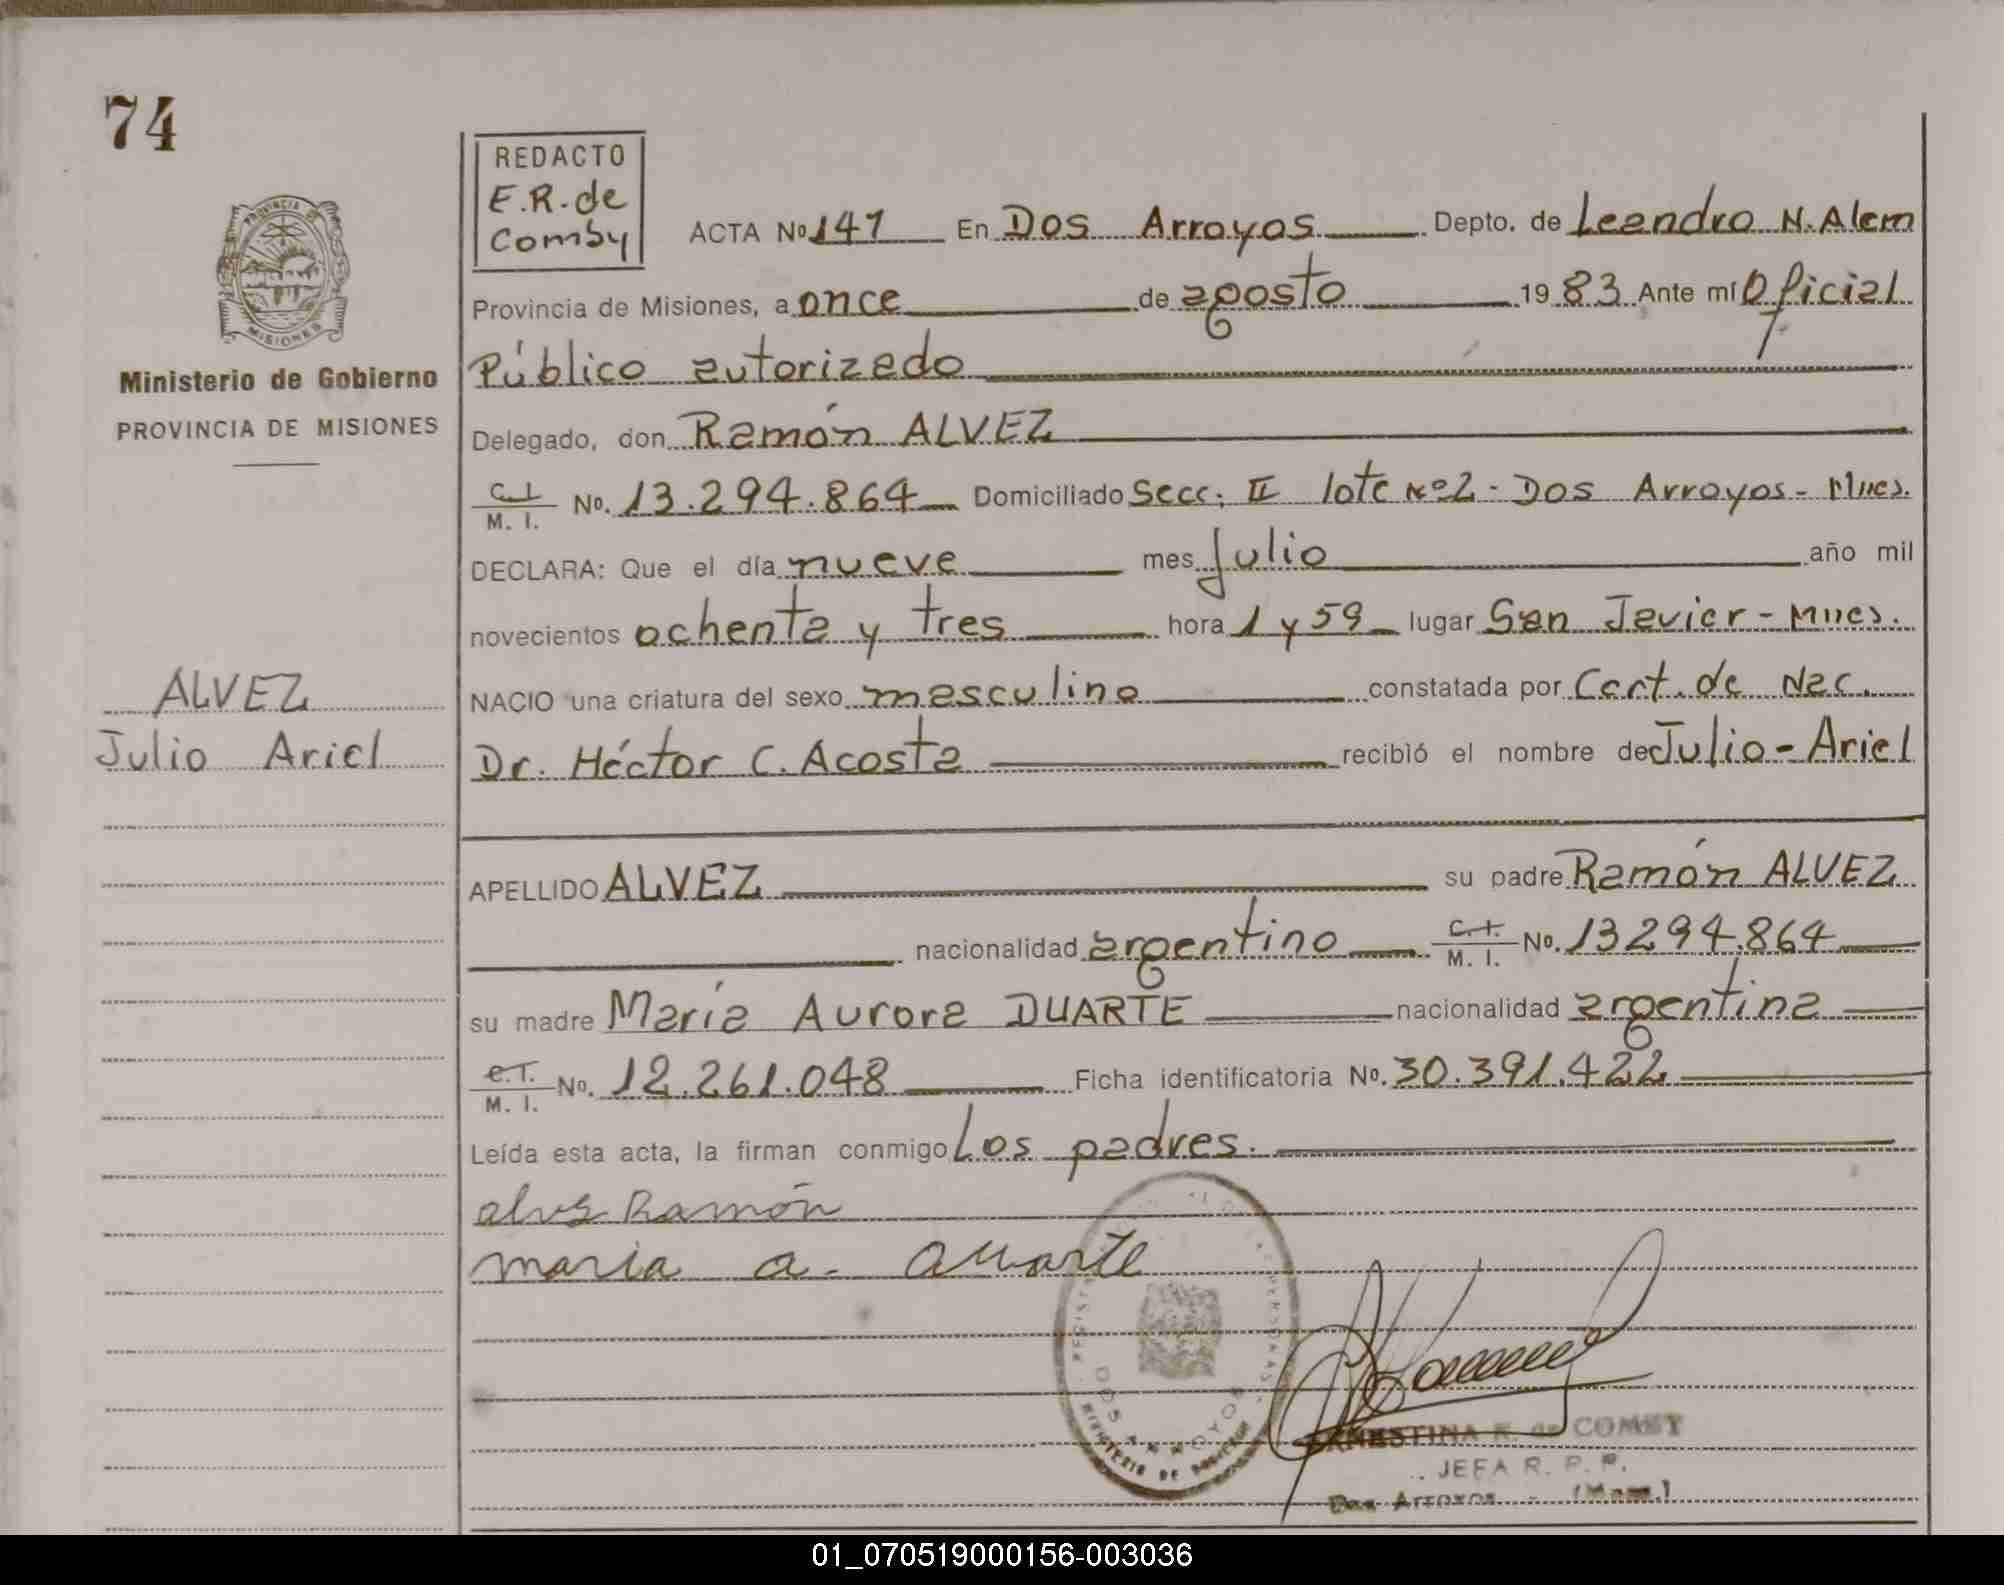 74
REDACTO
E.R. de
Comby
ACTA No 141 En Dos Arroyos Depto. de Leandro N. Alem
Provincia de Misiones, a once de agosto 1983 Ante mí Oficial
Público autorizado
Delegado, don Ramón ALVEZ
C.I. M. I. No. 13.294.864 Domiciliado Secc. II lote No 2 - Dos Arroyos - Mnes.
DECLARA: Que el día nueve mes Julio año mil
novecientos ochenta y tres hora 1 y 59 lugar San Javier - Mnes.
NACIO una criatura del sexo masculino constatada por Cert. de Nac.
Dr. Héctor C. Acosta recibió el nombre de Julio - Ariel
APELLIDO ALVEZ su padre Ramón ALVEZ
nacionalidad argentino C.I. M. I. No. 13294.864
su madre María Aurora DUARTE nacionalidad argentina
C.I. M. I. No. 12.261.048 Ficha identificatoria No. 30.391.422
Leída esta acta, la firman conmigo Los padres.
Ramón
maria a. duarte
PROVINCIA DE
MISIONES
Ministerio de Gobierno
PROVINCIA DE MISIONES
ALVEZ
Julio Ariel
DOS ARROYOS
MINISTERIO DE GOBIERNO
ERNESTINA R. de COMBY
JEFA R. P. P.
Dos Arroyos - (Mnes.)
01_070519000156-003036